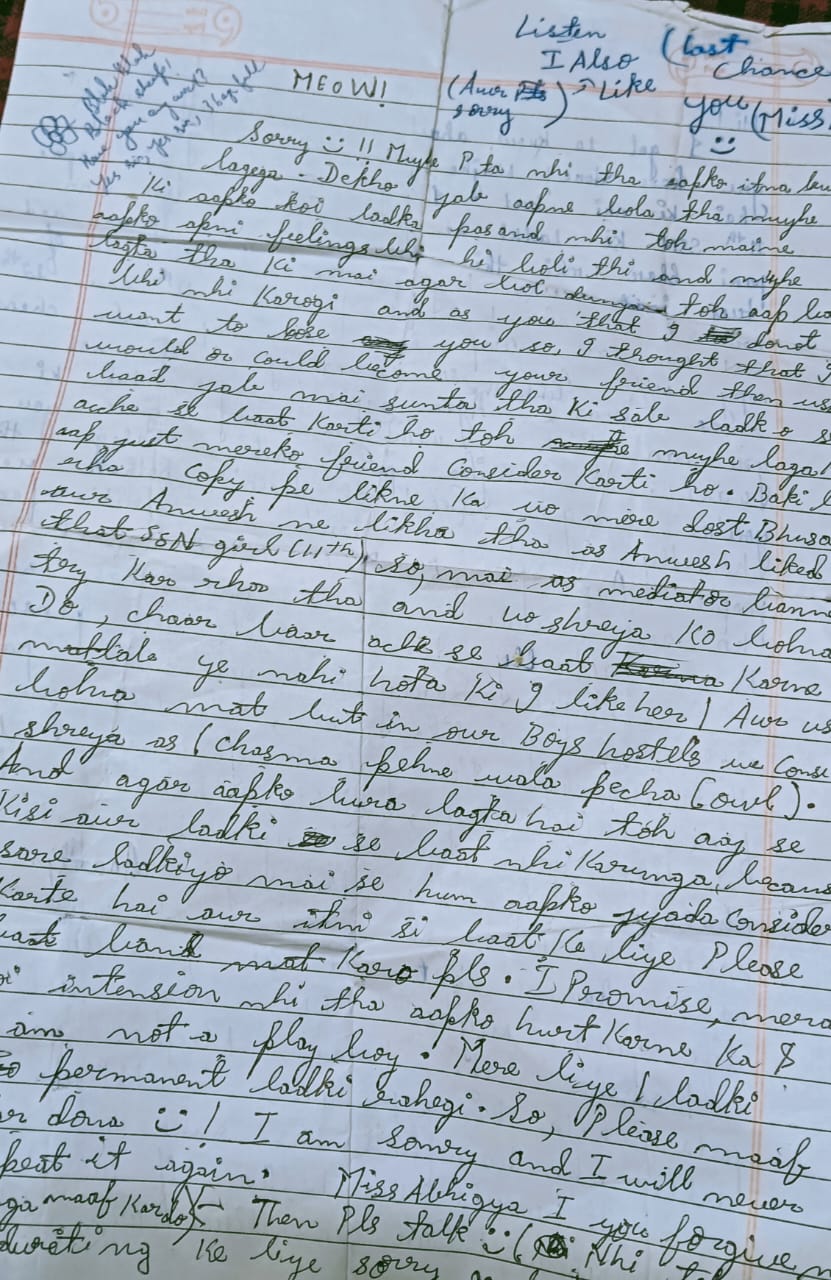 Listen
I Also (last
Chance
(Aur
sorry) Like
you (Miss
MEOW!
Blah blah
Black sheep!
Have you any wool?
Yes sir, yes sir, 3 bag full
Sorry !! Mujhe Pta nhi tha aapko itna bu
lagega. Dekho jab aapne bola tha mujhe
Ki aapko koi ladka pasand nhi toh maine
aapko apni feelings bhi hi boli thi and mujhe
lagta tha Ki mai agar bol dunga toh aap ba
bhi nhi Karogi and as you that I donot
want to lose you so, I thought that I
would or could become your friend then us
baad jab mai sunta tha Ki sab ladko s
acche se baat Karti ho toh mujhe laga
aap just mereko friend Consider Karti ho. Baki
rha Copy pe likne Ka vo mere dost Bhusa
aur Anwesh ne likha tha as Anwesh liked
that SSN girl (11th) so, mai as mediator bann
try Kar rhaa tha and vo shreya Ko bohna
Do, chaar baar ache se baat Karne
matlab ye nahi hota Ki I like her | Aur us
bohna mat but in our Boys hostels we Consi
shreya as (chasma pehne wala pecha (owl).
And agar aapko bura lagta hai toh aaj se
Kisi aur ladki se baat nhi Karunga, becaus
sare ladkiyo mai se hum aapko jyada Consider
Karte hai aur itni si baat Ke liye Please
baat band mat Karo pls. I Promise, mera
intension nhi tha aapko hurt Karne Ka &
am not a play boy. Mere liye 1 ladki
permanent ladki rahegi. So, Please maaf
dona ! I am sorry and I will never
peat it again. Miss Abhigya I you forgive m
ga maaf Kardo) Then Pls talk ( Nhi
Ke liye sorry